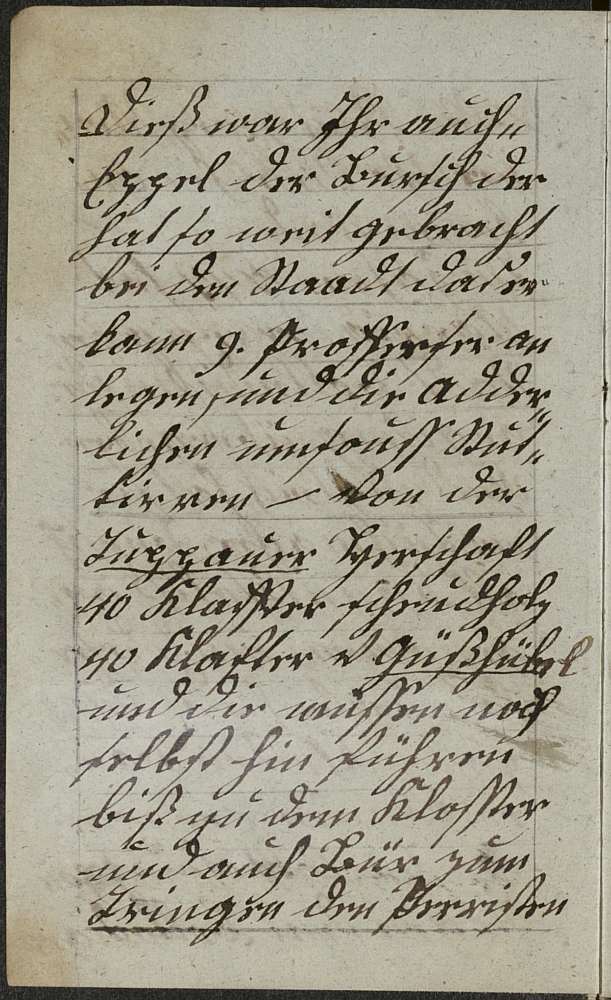 Dieß war Ihr auch„
Eppel der Bursch der
hat so weit gebracht
bei den Staadt daß er
kann 9. Profferser an
legen, und die Adder„
lichen umsonst Stut„
tirren – Von der
Duppauer Herschaft
40 Klaffter scheudholz
40 Klafter v Güßhübel
und die müssen noch
selbst hin führen
biß zu dem Kloster
und auch Bür zum
Tringen den Perristen